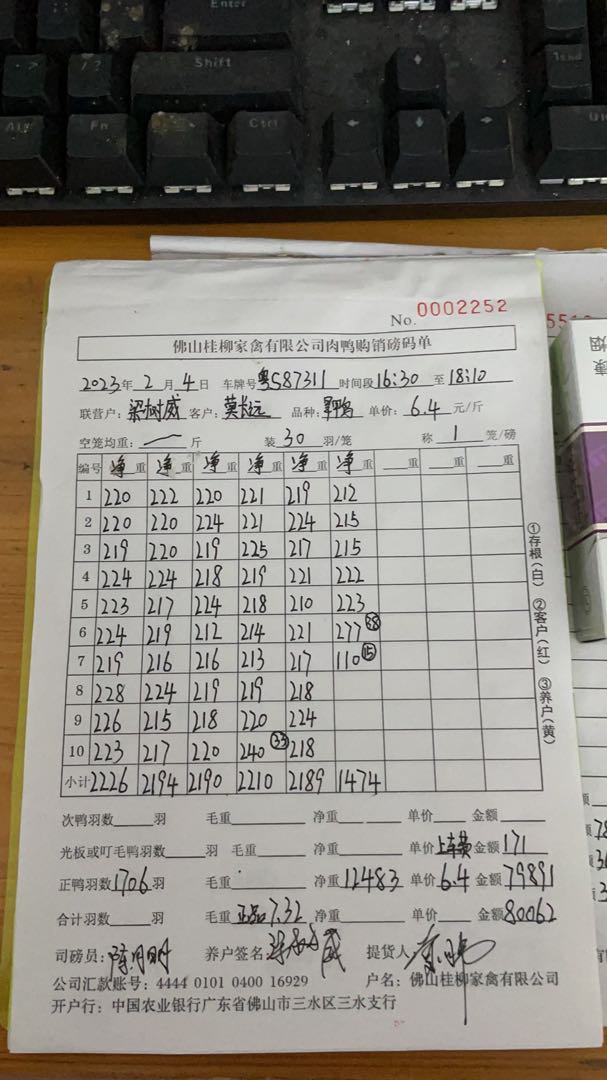 Enter
Shift
Alt Fn Ctrl
No. 0002252
佛山桂柳家禽有限公司肉鸭购销磅码单
2023年 2 月 4 日 车牌号 粤S87311 时间段 16:30 至 18:10
联营户: 梁树威 客户: 莫长远 品种: 单价: 6.4 元/斤
空笼均重: 一 斤 装 30 羽/笼 称 1 笼/磅
编号 净重 净重 净重 净重 净重 净重 重 重 重
1 220 222 220 221 219 212
2 220 220 224 221 224 215
3 219 220 219 225 217 215
4 224 224 218 219 221 222
5 223 217 224 218 210 223
6 224 219 212 214 221 277 38
7 219 216 216 213 217 110 15
8 228 224 219 219 218
9 226 215 218 220 224
10 223 217 220 240 33 218
小计 2226 2194 2190 2210 2189 1474
①存根(白) ②客户(红) ③养户(黄)
次鸭羽数 羽 毛重 净重 单价 金额
光板或叮毛鸭羽数 羽 毛重 净重 单价 上车费 金额 171
正鸭羽数 1706 羽 毛重 净重 12483 单价 6.4 金额 79891
合计羽数 羽 毛重 正品 7.32 净重 单价 金额 80062
司磅员: 养户签名 提货人
公司汇款账号: 4444 0101 0400 16929 户名: 佛山桂柳家禽有限公司
开户行: 中国农业银行广东省佛山市三水区三水支行